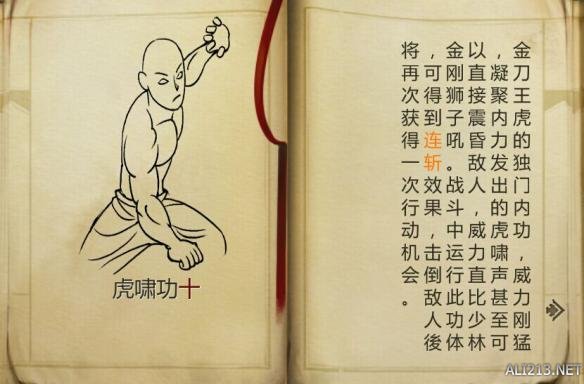 虎啸功十
金刀王虎的独门内功，威力刚猛
，凝聚内力发出的虎啸声甚至可
以直接震昏敌人，威力直比少林
金刚狮子吼。战斗中运行此功体
，可得到连斩效果，击倒敌人後
将再次获得一次行动机会。
ALI213.NET